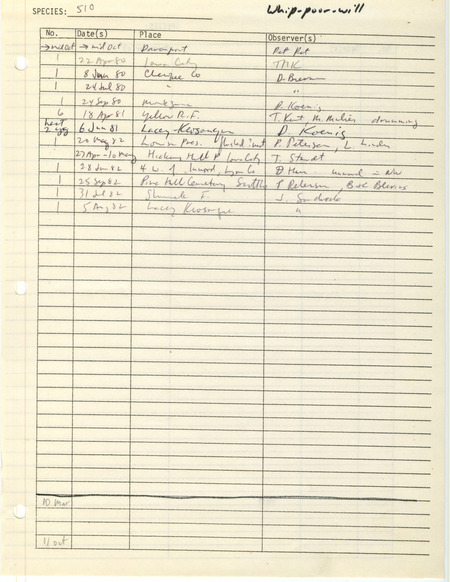 SPECIES: 510 Whip-poor-will
No. Date(s) Place Observer(s)
→midOct →mid Oct Davenport Pet Pet
1 22 Apr 80 Iowa City TMK
1 8 Jun 80 Cherokee Co D. Bierman
1 24 Jul 80 " "
1 24 Sep 80 P. Koenig
6 18 Apr 81 Yellow R. F. T. Kent drumming
nest 2 egg 6 Jun 81 Lacey-Keosauqua D Koenig
1 20 May 82 Louisa Pres. P. Petersen, L. Linder
27 Apr-10 May Hickory Hill P Iowa City T. Staudt
1 28 Jun 82 4 W. of Inwood, Lyon Co D unusual in NW
1 25 Sep 82 Pine Hill Cemetery Scott Co P Petersen, Bob Blevins
1 31 Jul 82 Shimek F. J. Sandrock
1 5 Aug 82 Lacey Keosauqua "
10 Mar
11 Oct